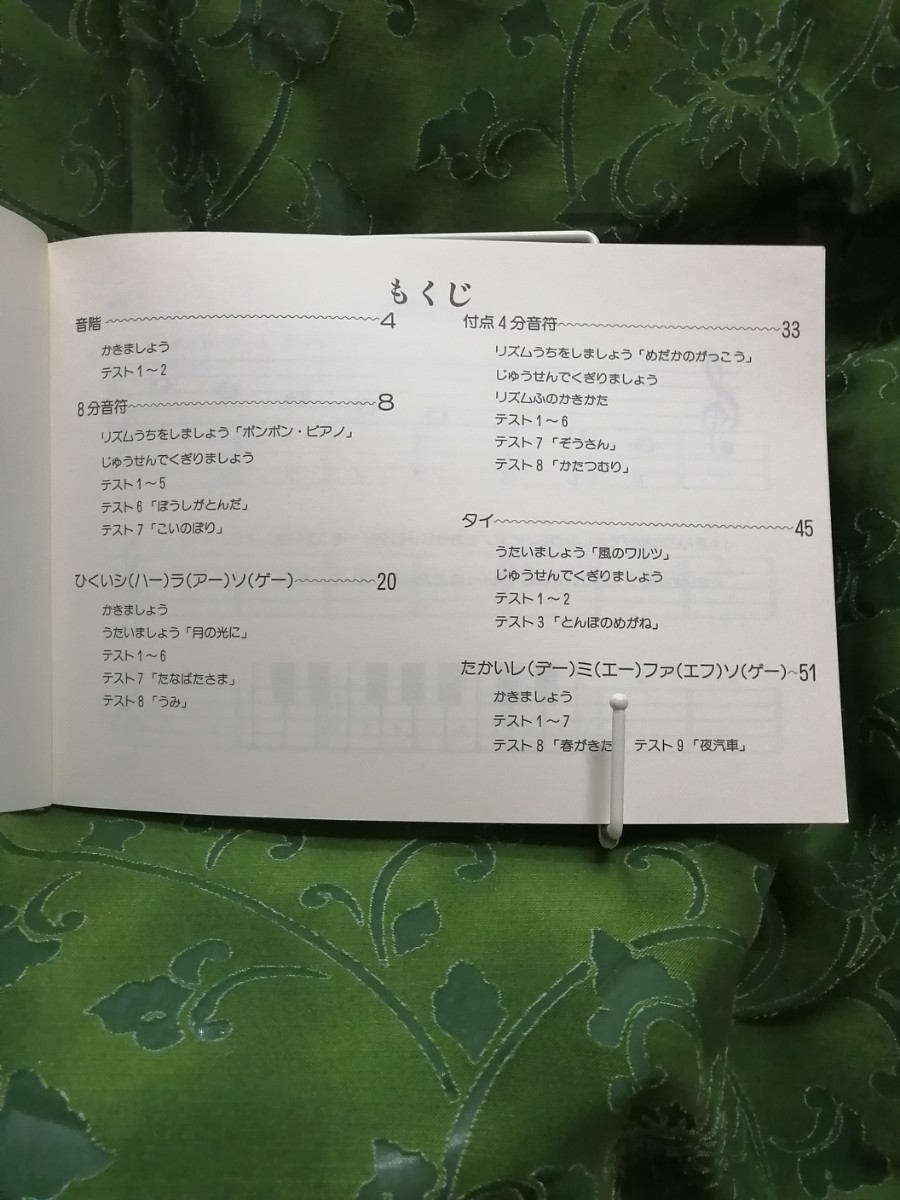 もくじ
音階 4
かきましょう
テスト1〜2
8分音符 8
リズムうちをしましょう「ポンポン・ピアノ」
じゅうせんでくぎりましょう
テスト1〜5
テスト6「ぼうしがとんだ」
テスト7「こいのぼり」
ひくいシ(ハー)ラ(アー)ソ(ゲー) 20
かきましょう
うたいましょう「月の光に」
テスト1〜6
テスト7「たなばたさま」
テスト8「うみ」
付点4分音符 33
リズムうちをしましょう「めだかのがっこう」
じゅうせんでくぎりましょう
リズムふのかきかた
テスト1〜6
テスト7「ぞうさん」
テスト8「かたつむり」
タイ 45
うたいましょう「風のワルツ」
じゅうせんでくぎりましょう
テスト1〜2
テスト3「とんぼのめがね」
たかいレ(デー)ミ(エー)ファ(エフ)ソ(ゲー) 51
かきましょう
テスト1〜7
テスト8「春がきた テスト9「夜汽車」